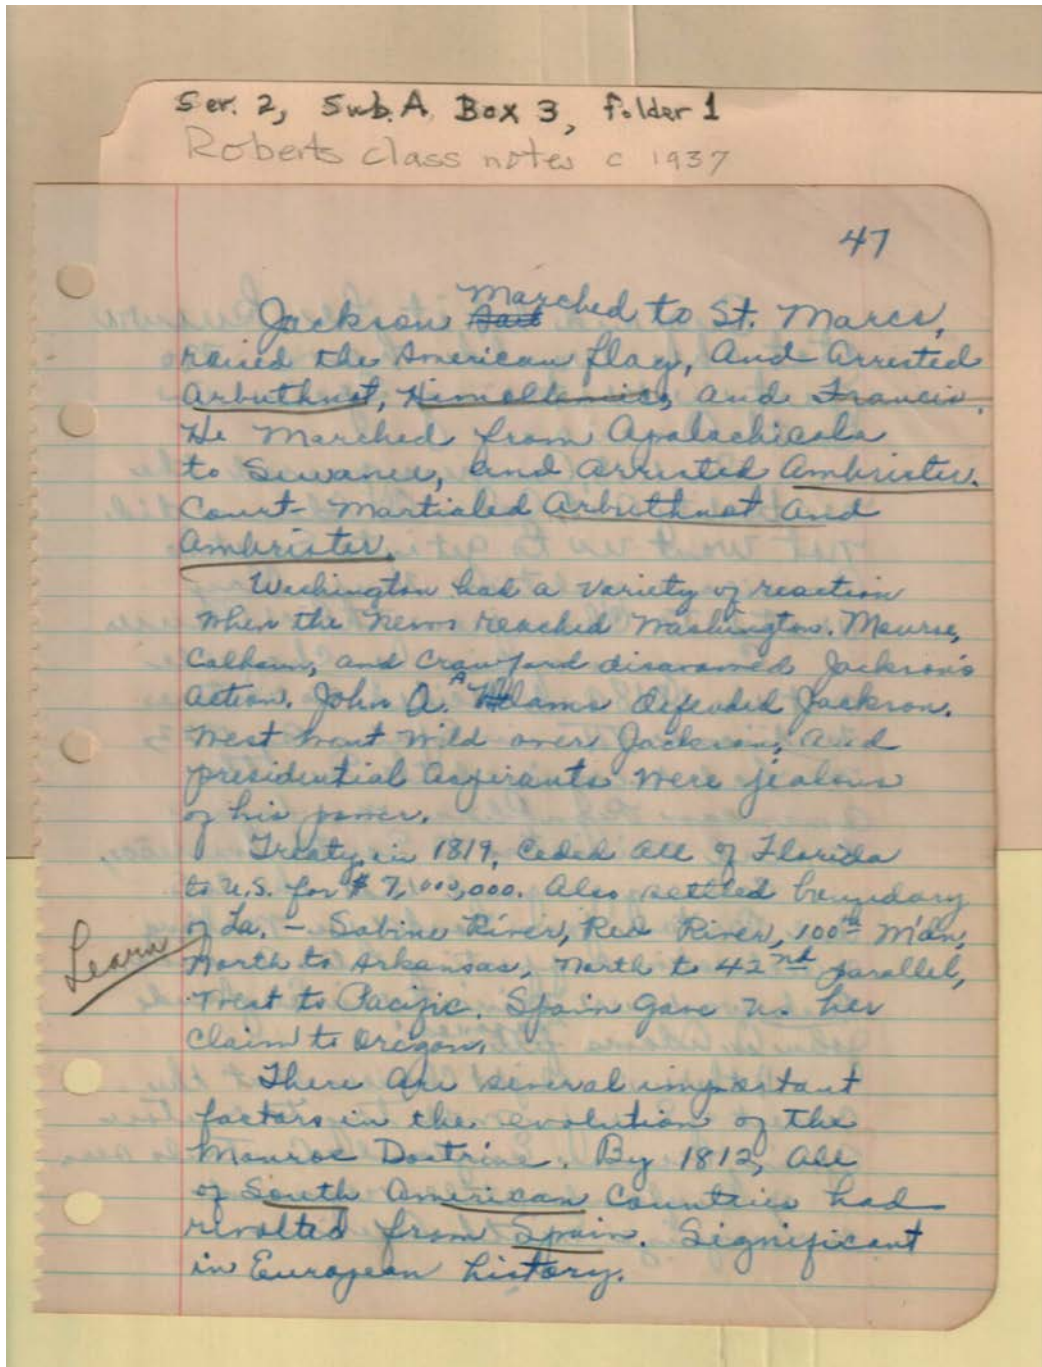 Ser. 2, Sub. A Box 3, folder 1
Roberts class notes c 1937
47
Jackson marched to St. Marcs,
raised the American flag, and arrested
Arbuthnot, Himollemico, and Francis.
He marched from Apalachicala
to Suwanee, and arrested Ambrister.
Court-martialed Arbuthnot and
Ambrister.
Washington had a variety of reaction
when the news reached Washington. Monroe,
Calhoun, and Crawford disavowed Jackson's
action. John Q. Adams defended Jackson.
West went wild over Jackson, and
presidential aspirants were jealous
of his power.
Treaty, in 1819, ceded all of Florida
to U.S. for $7,000,000. Also settled boundary
of La. – Sabine River, Red River, 100th M'dn,
Learn
north to Arkansas, north to 42nd parallel,
West to Pacific. Spain gave us her
claim to Oregon.
There are several important
factors in the evolution of the
Monroe Doctrine. By 1812, all
of South American countries had
revolted from Spain. Significant
in European history.